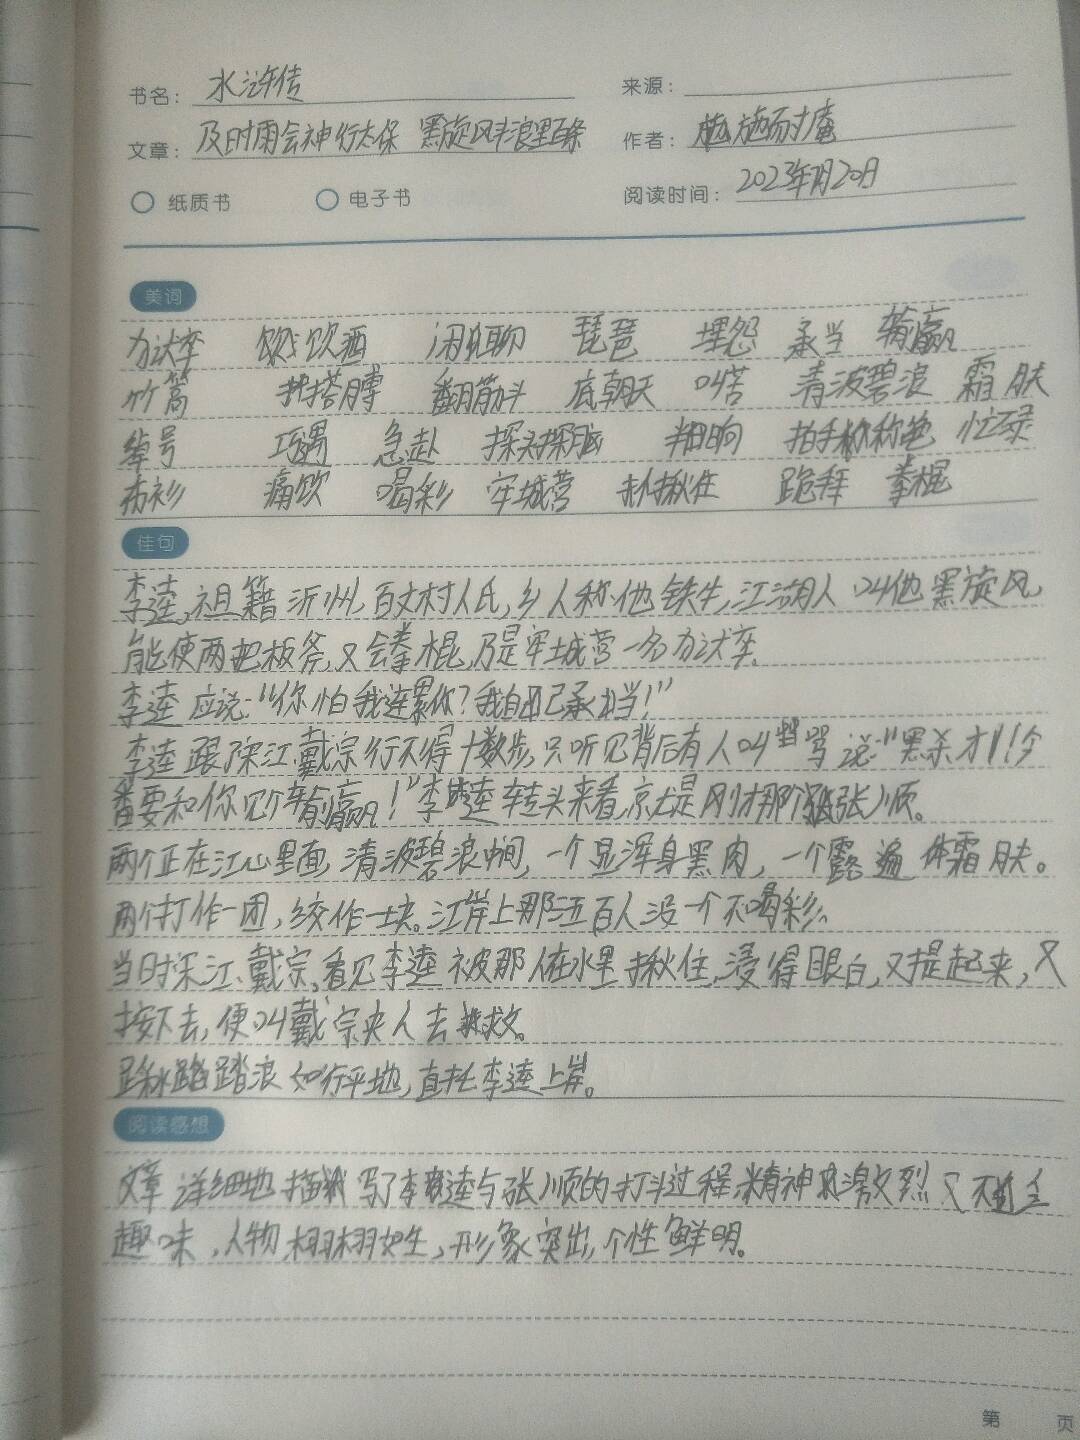 书名: 水浒传
来源:
文章: 及时雨会神行太保 黑旋风斗浪里白条
作者: 施耐庵
纸质书 电子书
阅读时间: 2023年1月20日
美词
力达牢 饮酒 闲聊 琵琶 埋怨 承当 输赢
竹篙 搭膊 翻筋斗 底朝天 叫苦 清波碧浪 霜肤
绰号 巧遇 急赴 探头探脑 粗响 拍手称绝 忙碌
布衫 痛饮 喝彩 牢城营 揪住 跪拜 拳棍
佳句
李逵,祖籍沂州,百丈村人氏,乡人称他铁牛,江湖人叫他黑旋风,
能使两把板斧,又会拳棍,乃是牢城营一名力达牢.
李逵应说:“你怕我连累你?我自己承当!”
李逵跟了宋江、戴宗行不得十数步,只听见背后有人叫骂说:“黑杀才!今
番要和你见个输赢!”李逵转头来看,就是刚才那个张顺。
两个正在江心里面,清波碧浪中间,一个显浑身黑肉,一个露遍体霜肤。
两个打作一团,绞作一块。江岸上那三五百人没一个不喝彩。
当时宋江、戴宗,看见李逵被那人在水里揪住,浸得眼白,又提起来,又
按下去,便叫戴宗央人去救。
踏浪如行平地,直托李逵上岸。
阅读感想
文章详细地描写了李逵与张顺的打斗过程,精神激烈又不失
趣味,人物栩栩如生,形象突出,个性鲜明。
第 页